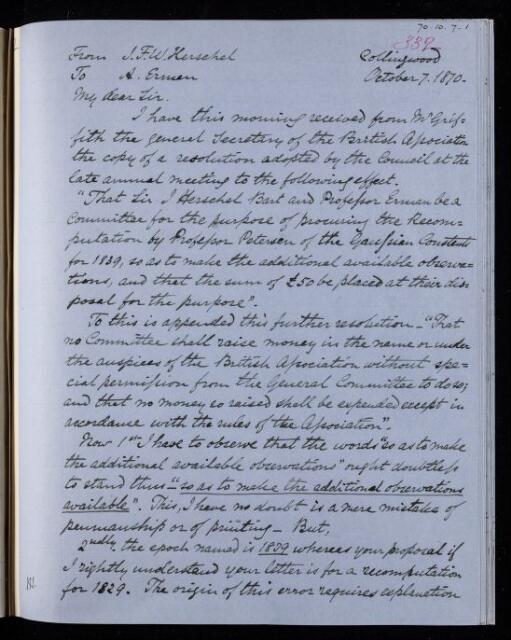 70.10.7-1
339
From J.F.W.Herschel
To A. Erman
Collingwood
October 7. 1870.
My dear Sir.
I have this morning received from Mr Grif=
fith the general Secretary of the British Association
the copy of a resolution adopted by the Council at the
late annual meeting to the following effect.
"That Sir J Herschel Bart and Professor Erman be a
Committee for the purpose of procuring the Recom=
putation by Professor Petersen of the Gaussian Constants
for 1839, so as to make the additional available observa=
tions, and that the sum of £50 be placed at their dis
posal for the purpose".
To this is appended this further resolution – "That
no Committee shall raise money in the name or under
the auspices of the British Association without spe=
cial permission from the General Committee to do so;
and that no money so raised shall be expended except in
accordance with the rules of the Association".
Now 1st I have to observe that the words "so as to make
the additional available observations" ought doubtless
to stand thus – "so as to make the additional observations
available". This, I have no doubt is a mere mistake of
penmanship or of printing – But,
2ndly the epoch named is 1839 whereas your proposal if
I rightly understand your letter is for a recomputation
for 1829. The origin of this error requires explanation